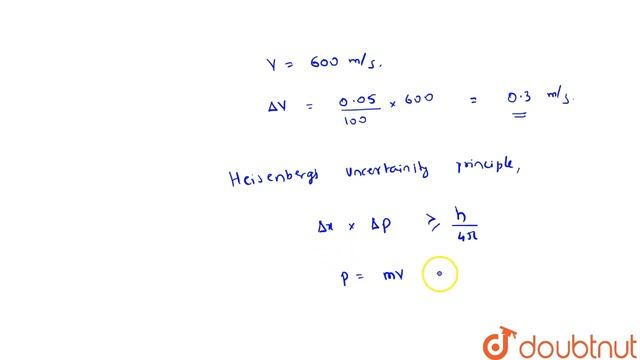 V = 600 m/s.
ΔV = 0.05/100 × 600 = 0.3 m/s.
Heisenbergs uncertainity principle,
Δx × Δp ≥ h/4π
p = mv
doubtnut